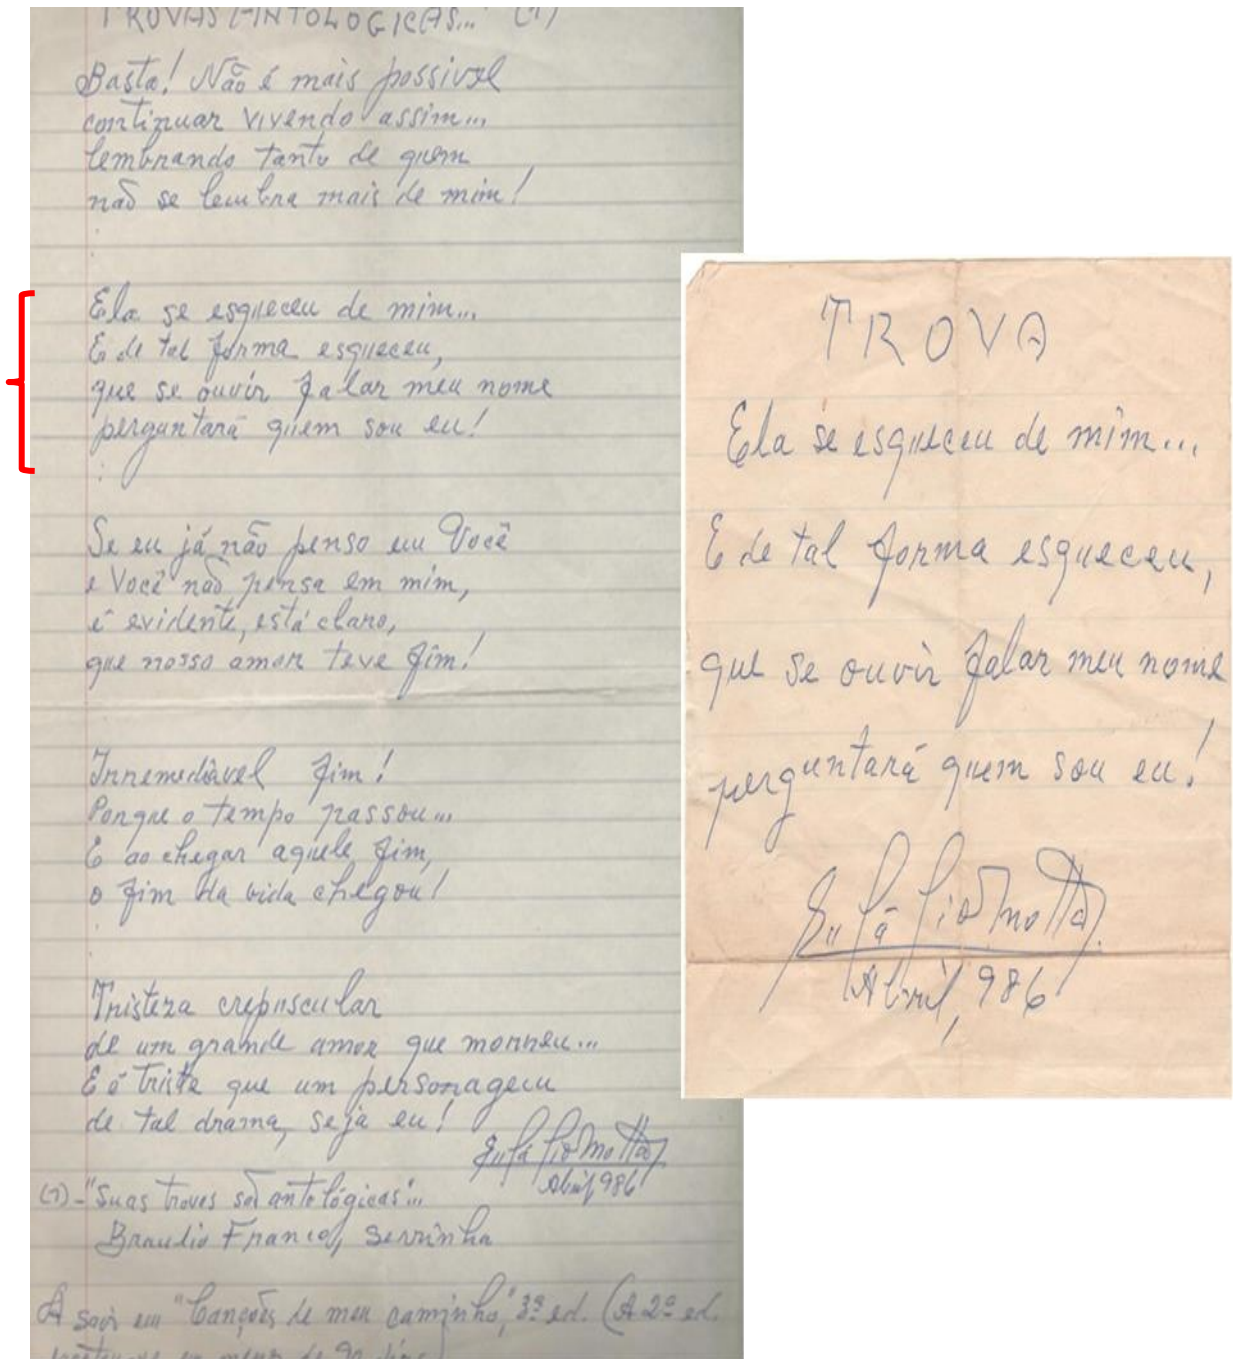 TROVAS ANTOLOGICAS... (1)
Basta! Não é mais possivel
continuar vivendo assim...
lembrando tanto de quem
não se lembra mais de mim!
Ela se esqueceu de mim...
E de tal forma esqueceu,
que se ouvir falar meu nome
perguntará quem sou eu!
Se eu já não penso em Você
e Você não pensa em mim,
é evidente, está claro,
que nosso amor teve fim!
Irremediável fim!
Porque o tempo passou...
E ao chegar aquele fim,
o fim da vida chegou!
Tristeza crepuscular
de um grande amor que morreu...
E é triste que um personagem
de tal drama, seja eu!
Eulálio Motta
Abril, 986
(1) - "Suas trovas são antológicas"...
Braulio Franco, Serrinha
A sair em "Canções de meu caminho," 3ª ed. (A 2ª ed.
em menos de 90 dias)
TROVA
Ela se esqueceu de mim...
E de tal forma esqueceu,
que se ouvir falar meu nome
perguntará quem sou eu!
Eulálio Motta
Abril, 986